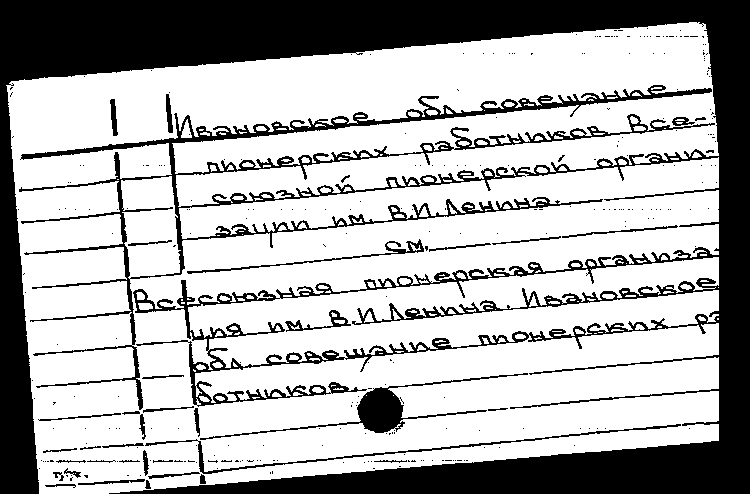 Ивановское обл. совещание
пионерских работников Все-
союзной пионерской органи-
зации им. В.И.Ленина.
см.
Всесоюзная пионерская организа-
ция им. В.И.Ленина. Ивановское
обл. совещание пионерских ра
ботников.